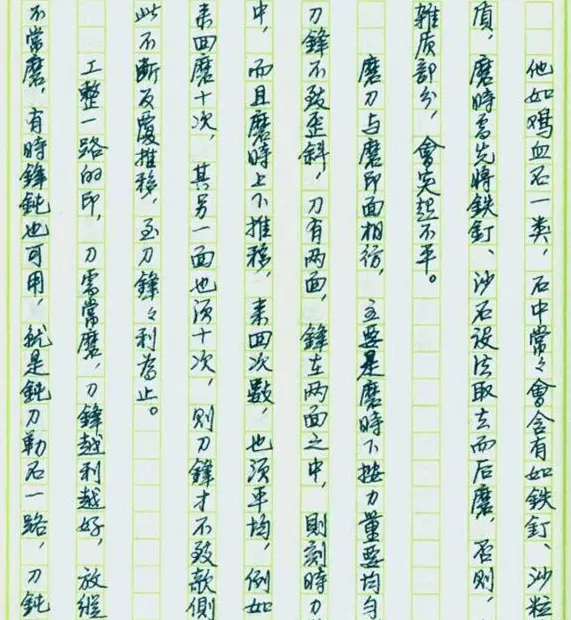 他如鸡血石一类，石中常々會含有如鉄釘、沙粒
质，磨時需先將鉄釘、沙石设法取去而后磨，否则，
雜质部分，會突起不平。
磨刀与磨印面相彷，主要是磨時下按力量要均匀
刀鋒不致歪斜，刀有两面，鋒在两面之中，則刻時刀
中，而且磨時上下推移，来回次數，也须平均，例如
来回磨十次，其另一面也须十次，则刀鋒才不致欹側
此不斷反覆推移，至刀鋒々利為止。
工整一路的印，刀需常磨，刀鋒越利越好，放縱
不常磨，有時鋒鈍也可用，就是鈍刀勒石一路，刀鈍